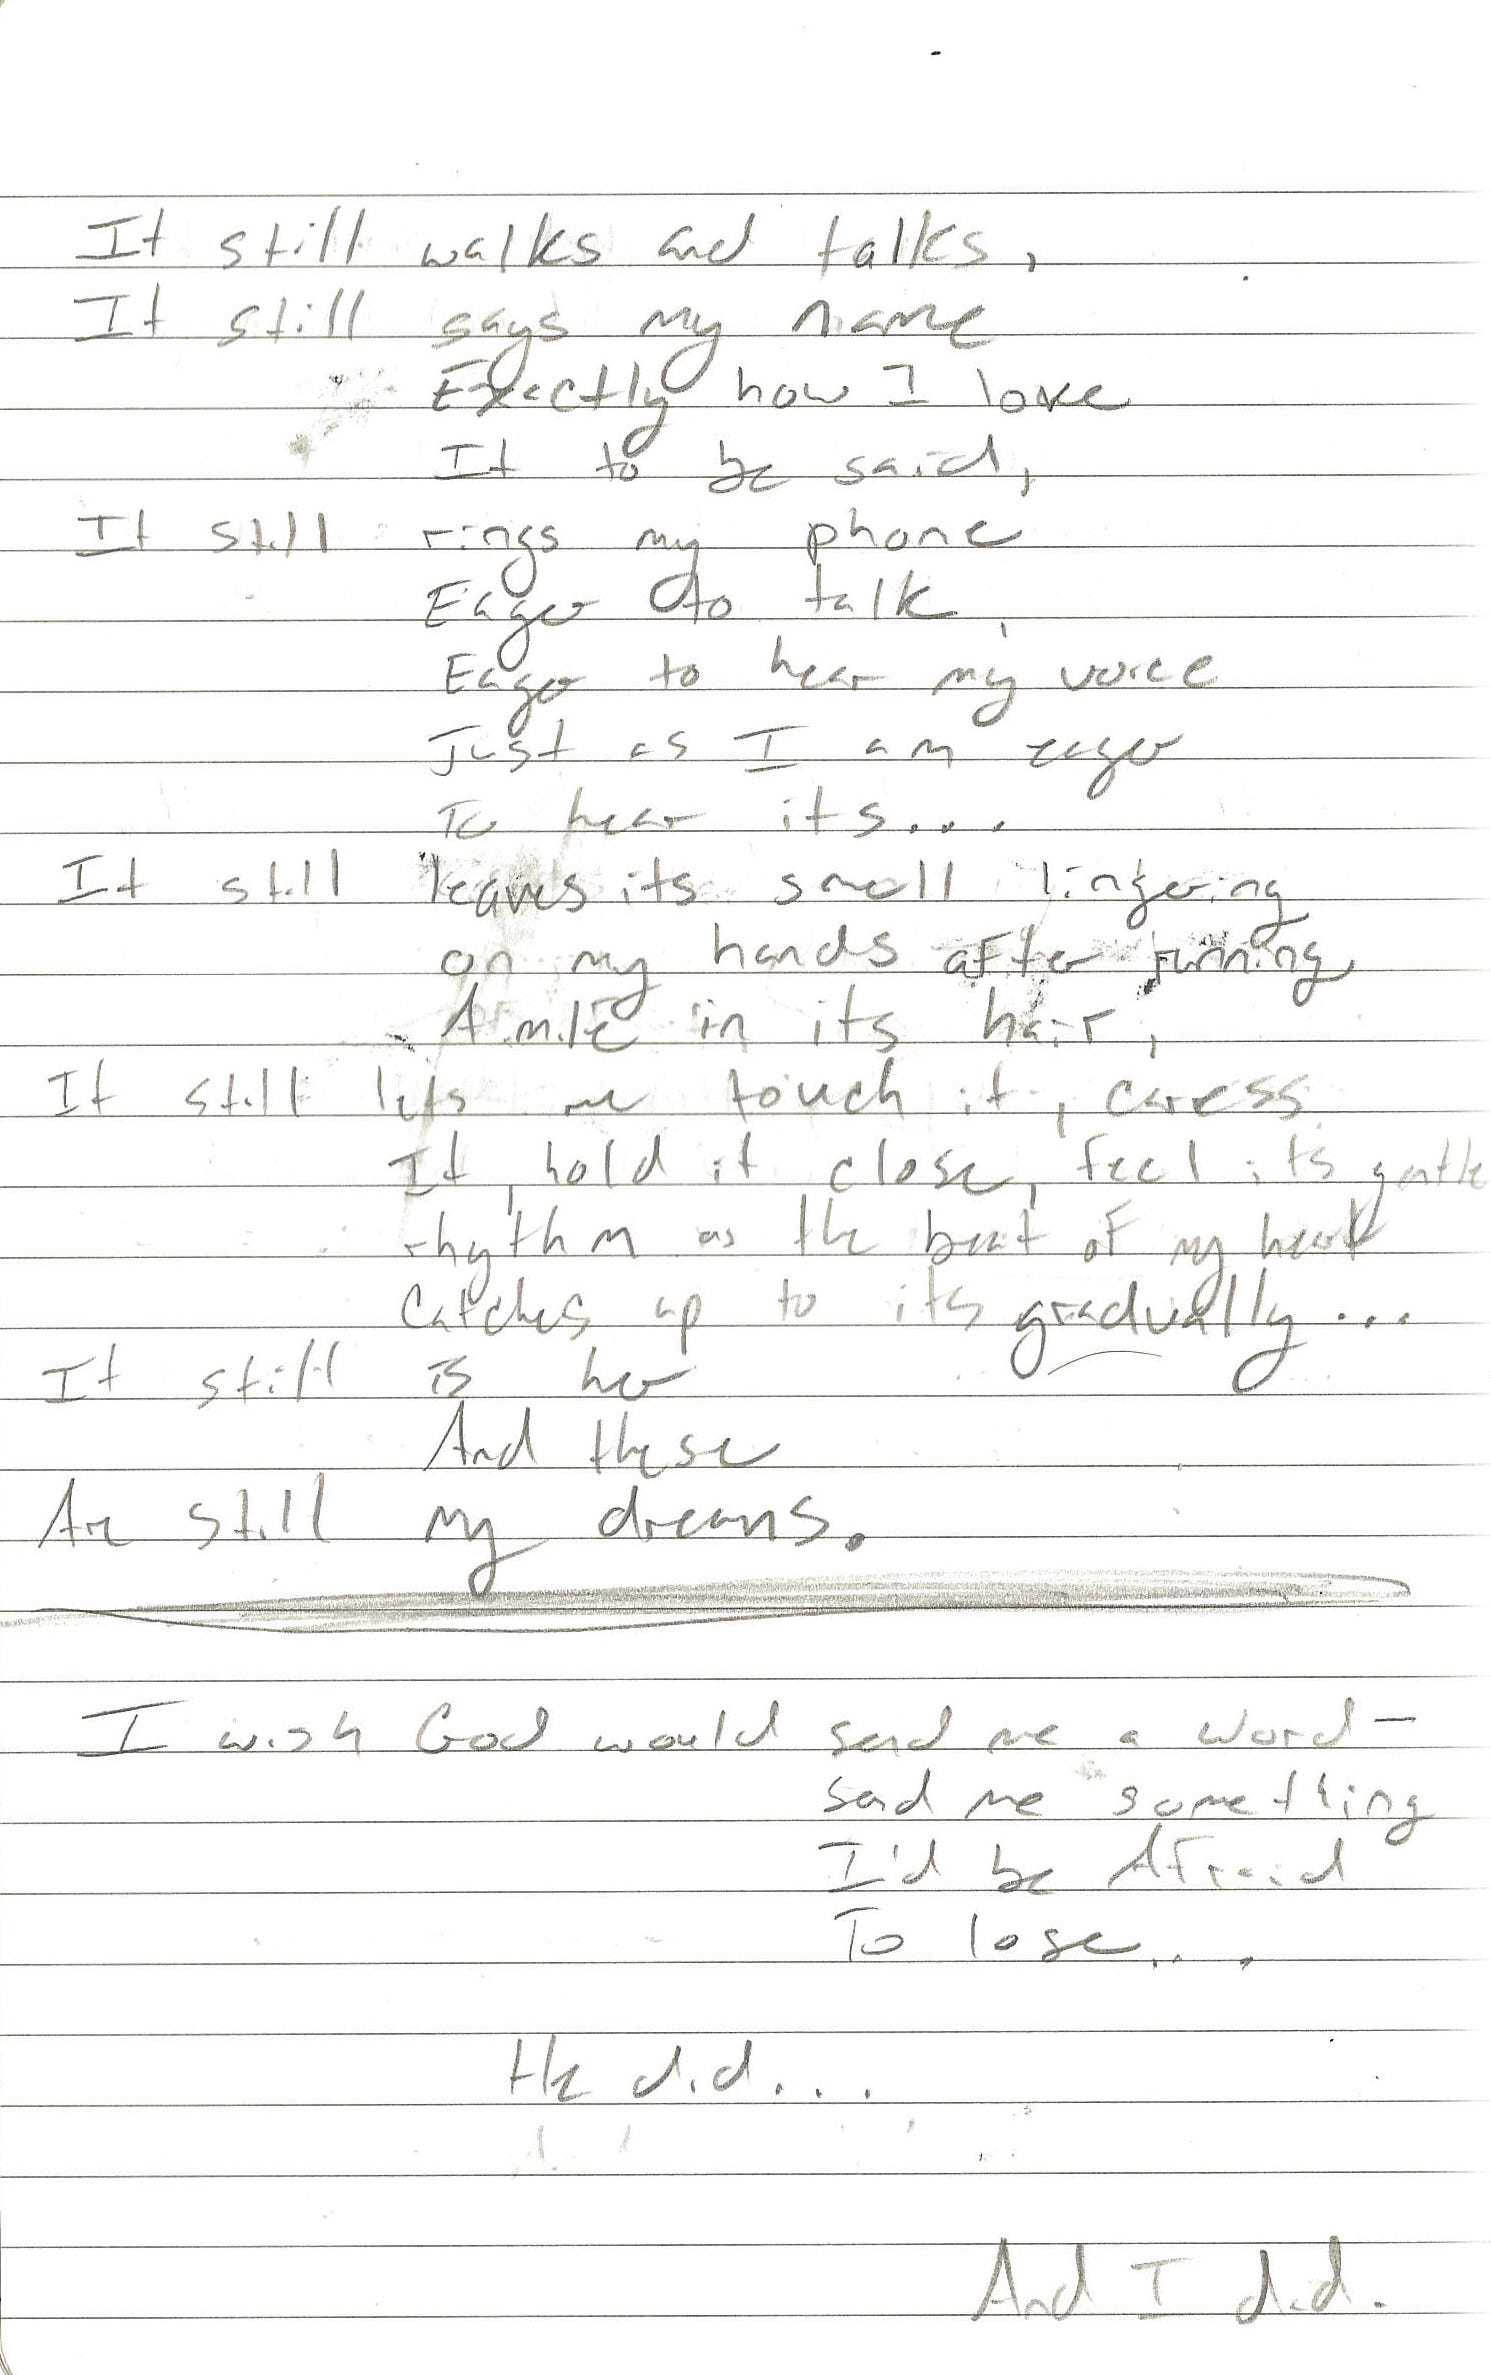 It still walks and talks,
It still says my name
Exactly how I love
It to be said,
It still rings my phone
Eager to talk,
Eager to hear my voice
Just as I am eager
To hear its...
It still leaves its smell lingering
on my hands after running
A mile in its hair,
It still lets me touch it, caress
It, hold it close, feel its gentle
rhythm as the beat of my heart
Catches up to its gradually...
It still is her
And these
Are still my dreams.
I wish God would send me a word—
send me something
I'd be Afraid
To lose...
He did...
And I did.